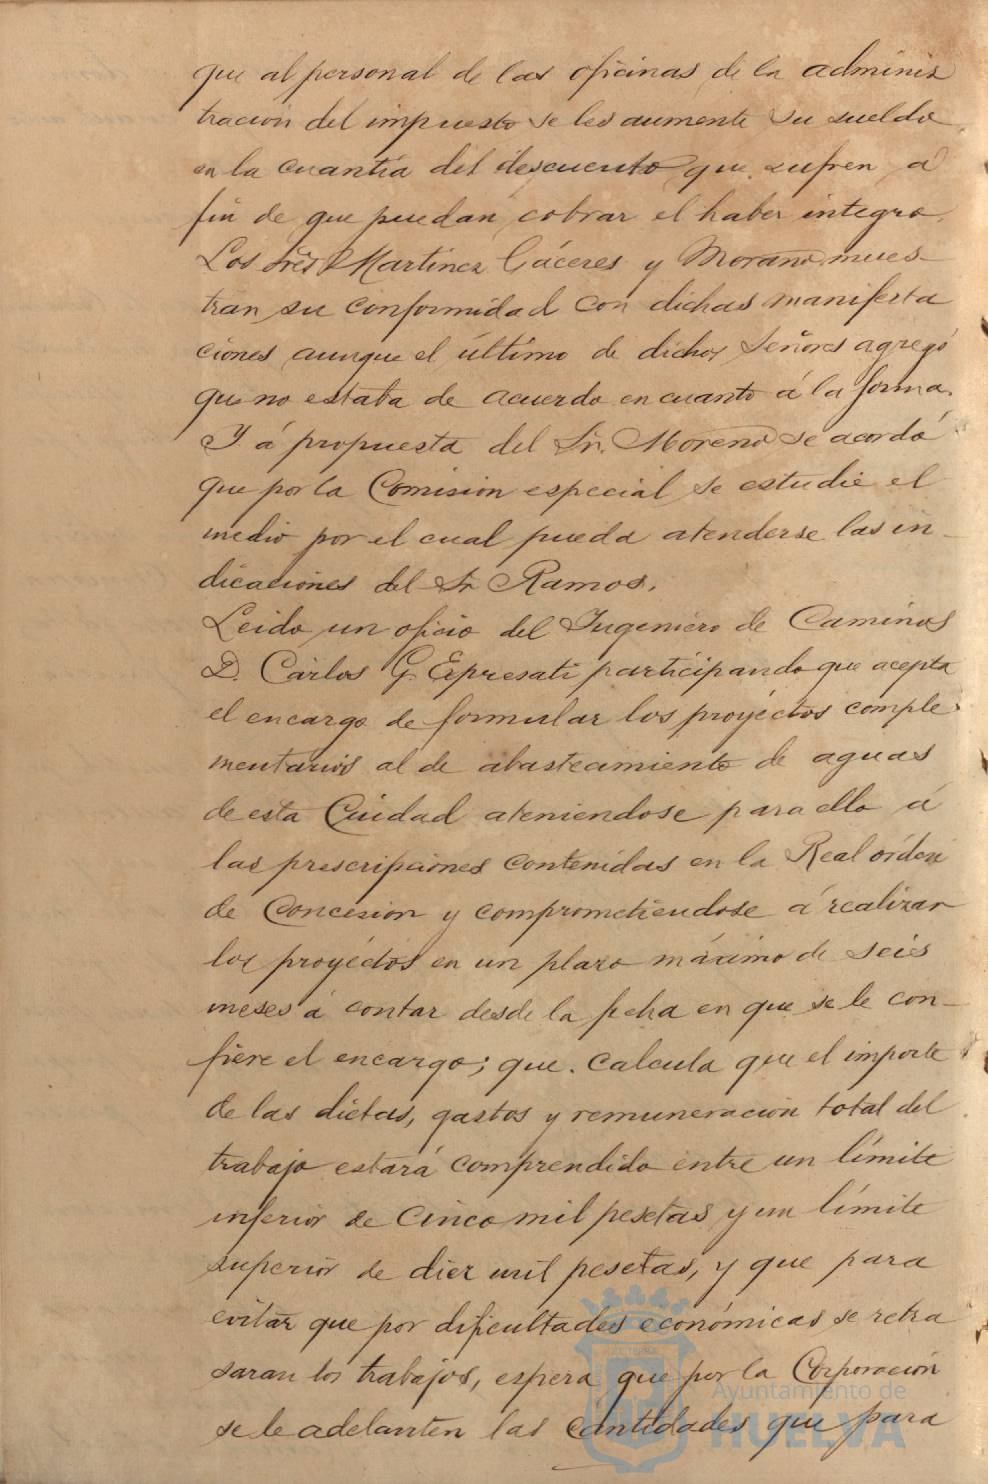 que al personal de las oficinas de la adminis
tracion del impuesto se les aumente su sueldo
en la cuantía del descuento que sufren á
fin de que puedan cobrar el haber integro.
Los Sres Martinez Cáceres y Morano mues-
tran su conformidad con dichas manifesta
ciones aunque el último de dichos Señores agregó
que no estaba de acuerdo en cuanto á la forma.
Y á propuesta del Sr. Moreno se acordó
que por la Comision especial se estudie el
medio por el cual pueda atenderse las in-
dicaciones del Sr Ramos.
Leido un oficio del Ingeniero de Caminos
D. Cárlos G. Espresati participando que acepta
el encargo de formular los proyectos comple
mentarios al de abastecimiento de aguas
de esta Ciudad ateniendose para ello á
las prescripciones contenidas en la Real órden
de Concesion y comprometiendose á realizar
los proyéctos en un plazo máximo de seis
meses á contar desde la fecha en que se le con-
fiere el encargo; que. calcula que el importe
de las dietas, gastos y remuneracion total del
trabajo estará comprendido entre un límite
inferior de cinco mil pesetas y un límite
superior de diez mil pesetas, y que para
evitar que por dificultades económicas se retra
saran los trabajos, espera que por la Corporación
se le adelanten las cantidades que para
Ayuntamiento de
HUELVA